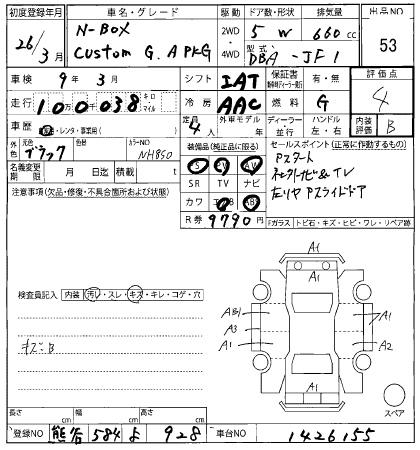 初度登録年月 車名・グレード 駆動 ドア数・形状 排気量 出品NO
26/3月 N-BOX 2WD 5 W 660 cc 53
Custom G. A PKG 4WD 型式 DBA-JF1
車検 9年 3月 シフト IAT 保証書 有・無 評価点
走行 100千038 キロ・マイル 冷房 AAC 燃料 G 4
車歴 レンタ・事業用( ) 定員 4人 外車モデル 年 ディーラー・並行 ハンドル 左・右 内装評価 B
外色 元色 ブラック 色替 カラーNO NH850 装備品(純正品に限る) セールスポイント(正常に作動するもの)
名義変更期限 月 日迄 積載量 t PS PW AW Pスタート
注意事項(欠品・修復・不具合箇所および状態) SR TV ナビ TV
カワ エアB AB 左リヤPスライドドア
R券 9790円 Fガラス トビ石・キズ・ヒビ・ワレ・リペア跡
A1
A1
検査員記入 内装 汚レ・スレ・キズ・キレ・コゲ・穴
A1
A3 A1
キズB A1 A2
スペア
長さ cm 幅 cm 高さ cm
登録NO 熊谷 584 よ 928 車台NO 1426155